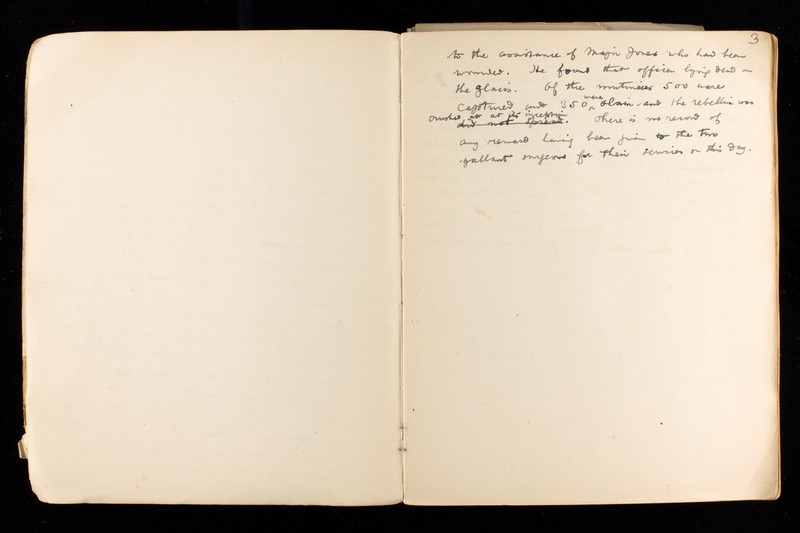 3
to the assistance of Major Jones who had been
wounded. He found that officer lying dead on
the glacis. Of the mutineers 500 were
captured and 350 were slain, and the rebellion was
crushed at its inception
did not spread. There is no record of
any reward having been given to the two
gallant surgeons for their services on this day.